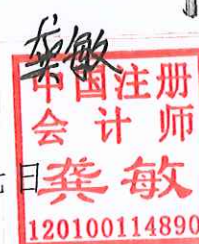 龚敏
中国注册
会计师
日
龚敏
120100114890